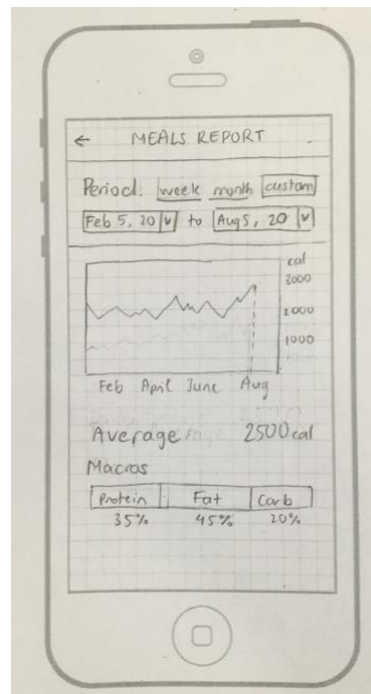 ← MEALS REPORT
Period: week month custom
Feb 5, 20 to Aug 5, 20
cal
3000
2000
1000
Feb April June Aug
Average 2500 cal
Macros
Protein Fat Carb
35% 45% 20%